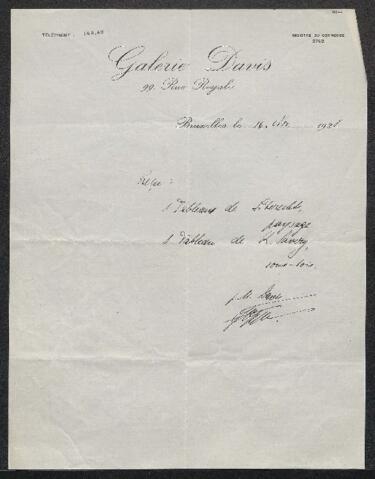 TÉLÉPHONE : 144,49
REGISTRE DU COMMERCE
2762
Galerie Davis
99, Rue Royale
Bruxelles, le 16 1928
Reçu :
1 Tableaux de Siberechts,
paysage
1 Tableau de R. Savery,
sous-bois.
p. M. Davis